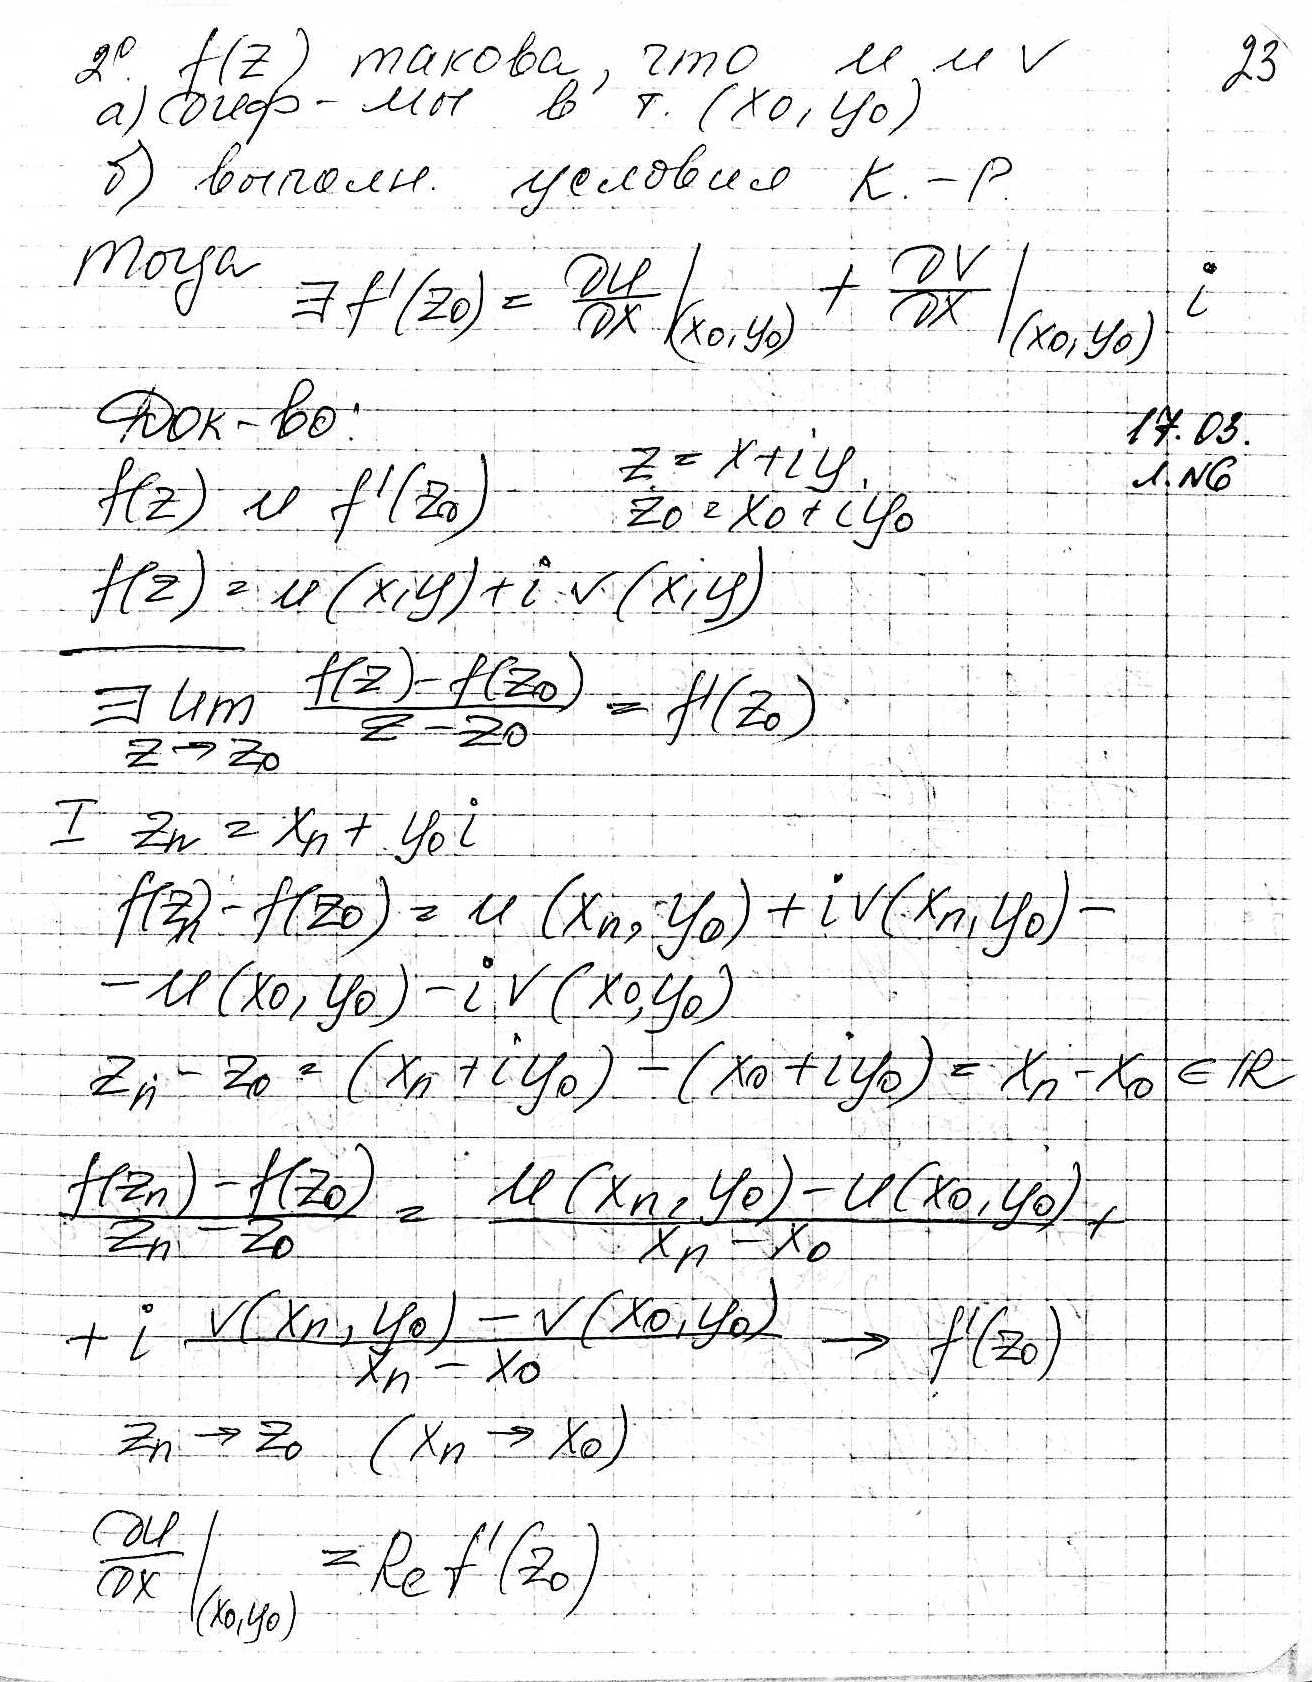 23
2º. f(z) такова, что u и v
а) диф-мы в т. (x₀, y₀)
б) выполн. условия К.-Р.
Тогда
∃ f'(z₀) = ∂u/∂x |(x₀, y₀) + ∂v/∂x |(x₀, y₀) i
Док-во:
17.03.
л.N6
f(z) и f'(z₀) z = x+iy,
z₀ = x₀+iy₀
f(z) = u(x,y)+i v(x,y)
∃ lim z→z₀ (f(z)-f(z₀))/(z-z₀) = f'(z₀)
I zₙ = xₙ + y₀i
f(zₙ)-f(z₀) = u(xₙ, y₀)+iv(xₙ, y₀)-
-u(x₀, y₀)-iv(x₀, y₀)
zₙ-z₀ = (xₙ+iy₀)-(x₀+iy₀) = xₙ-x₀ ∈ ℝ
(f(zₙ)-f(z₀))/(zₙ-z₀) = (u(xₙ, y₀)-u(x₀, y₀))/(xₙ-x₀) +
+ i (v(xₙ, y₀)-v(x₀, y₀))/(xₙ-x₀) → f'(z₀)
zₙ → z₀ (xₙ → x₀)
∂u/∂x |(x₀, y₀) = Re f'(z₀)